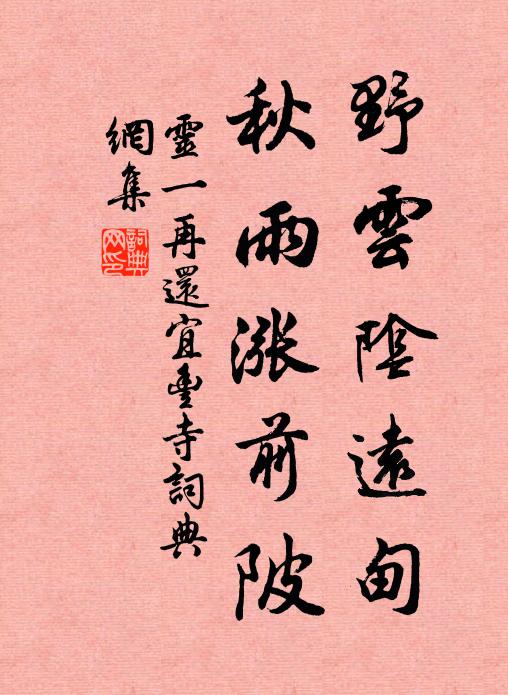 野雲陰遠甸
秋雨漲前陂
靈一再還宜豐寺詞典
網集
詞典网印